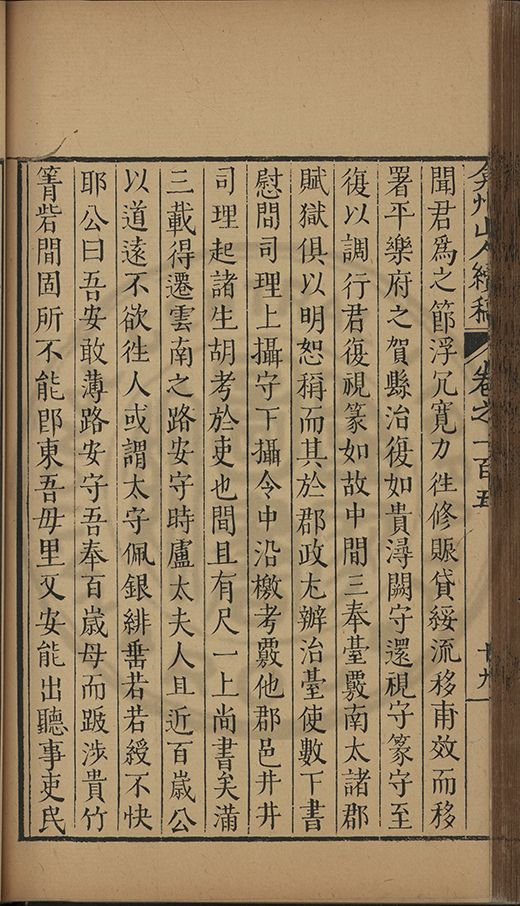 弇州山人續稿 卷之一百五 十九
聞君爲之節浮冗寬力徃修賑貸綏流移甫效而移
署平樂府之賀縣治復如貴潯闕守還視守篆守至
復以調行君復視篆如故中間三奉臺覈南太諸郡
賦獄俱以明恕稱而其於郡政尤辦治臺使數下書
慰間司理上攝守下攝令中沿檄考覈他郡邑井井
司理起諸生胡考於吏也間且有尺一上尚書矣滿
三載得遷雲南之路安守時盧太夫人且近百歲公
以道遠不欲徃人或謂太守佩銀緋垂若若綬不快
耶公曰吾安敢薄路安守吾奉百歲母而跋涉貴竹
箐砦間固所不能卽東吾毋里又安能出聽事吏民